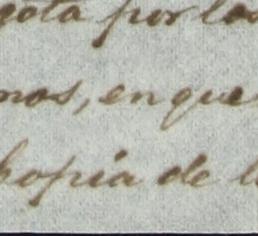 gota por los
mos, en que
copia de l